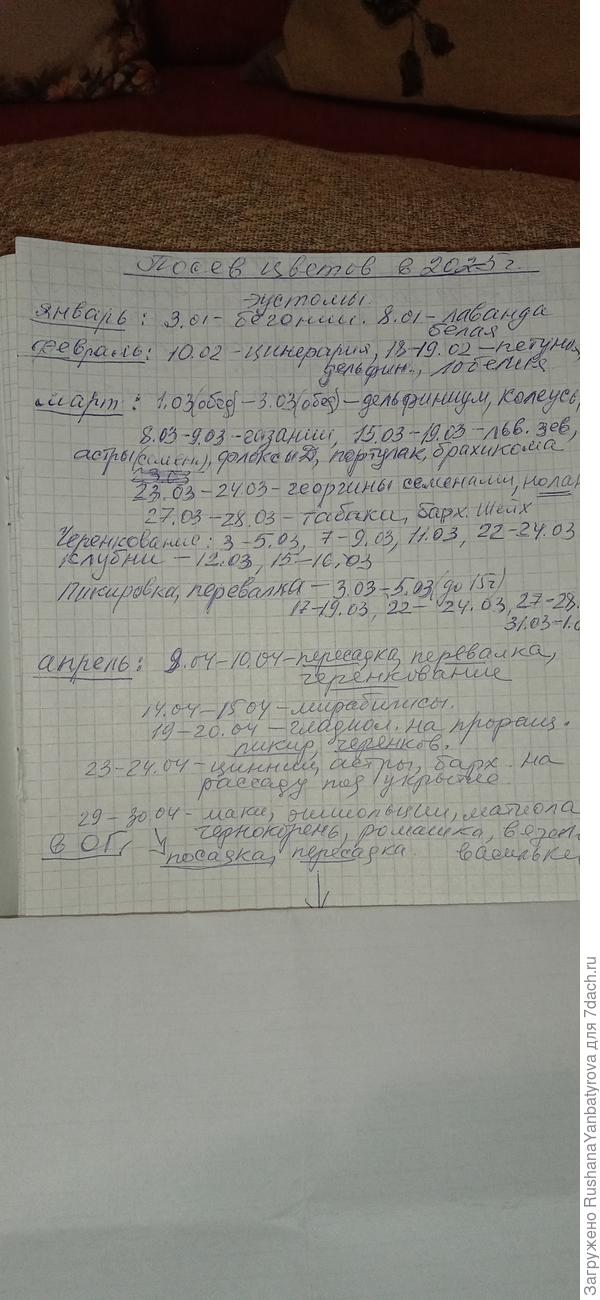 Посев цветов в 2025 г.
эустомы.
январь: 3.01 - бегонии. 8.01 - лаванда
белая
февраль: 10.02 - цинерария, 18-19.02 - петуния
дельфин., лобелия
март: 1.03 (обед) - 3.03 (обед) - дельфиниум, колеусы
8.03-9.03 - газании, 15.03-19.03 - льв. зев,
астры (семен.), флоксы Д, портулак, брахикома
23.03-24.03 - георгины семенами, нолан
27.03-28.03 - табаки, барх.
Черенкование: 3-5.03, 7-9.03, 11.03, 22-24.03
клубни - 12.03, 15-16.03
Пикировка, перевалка - 3.03-5.03 (до 15ч)
17-19.03, 22- 24.03, 27-28.
31.03-1.0
апрель: 8.04-10.04 - пересадка, перевалка,
черенкование
14.04-15.04 - мирабилисы.
19-20.04 - гладиол. на проращ.
пикир, черенков.
23-24.04 - циннии, астры, барх. на
рассаду под укрытие
29-30.04 - маки, эшшольции, матиола
чернокорень, ромашка, вязел
в ОГ, посадка, пересадка васильки
Загружено RushanaYanbatyrova для 7dach.ru